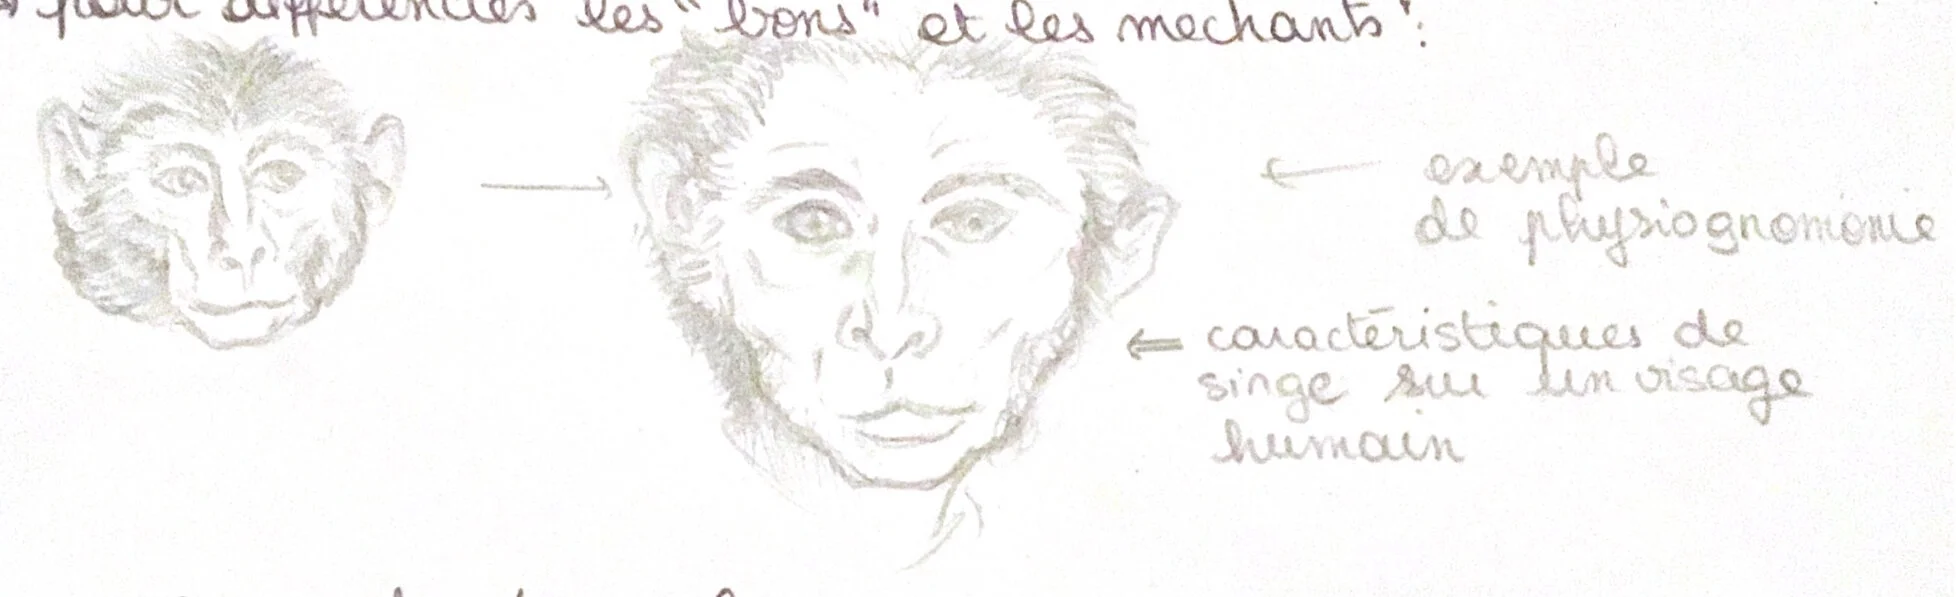 pour différencies les "bons" et les mechants".
exemple
de physiognomonie
caractéristiques de
singe sur un visage
humain